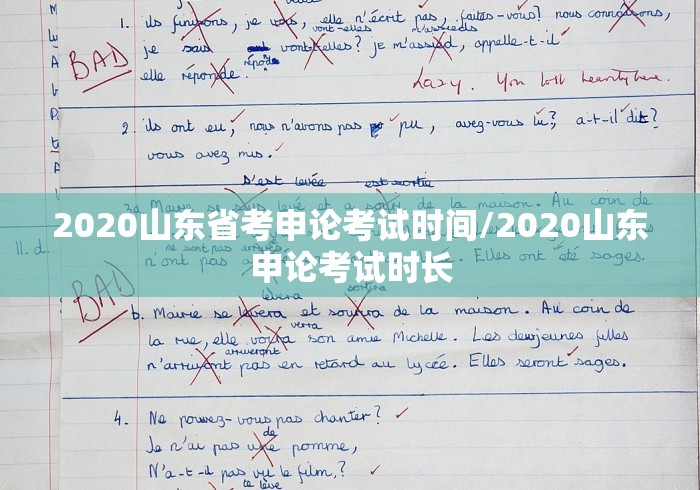 1. ils finissons, je vais, elle n'écrit pas, faites-vous? nous connaissons,
vont-elles m'assieds
je sais vont-elles? je m'assied, appelle-t-il
BAD
répond
elle réponde.
Lazy. You lost heavily here.
2. ils ont eu, nous n'avons pas pu, avez-vous lu?, a-t-il dit?
vous avez mis.
s'est levée est sortie
3a la maison. Au coin de
2020山东省考申论考试时间/2020山东
申论考试时长
II.d.
n'ont pas Elles ont été sages.
BAD
lèvera sortira
b. Mairie se levera et sortira de la maison. Au coin de
verra
la rue, elle voira son amie Michelle. Les deux jeunes filles
arriveront
n'arrivont pas en retard au lycée. Elles seront sages.
4. Ne pouvez-vous pas chanter?
de
Je n'ai pas une pomme,
N'a-t-il pas vu le film,?
le lève